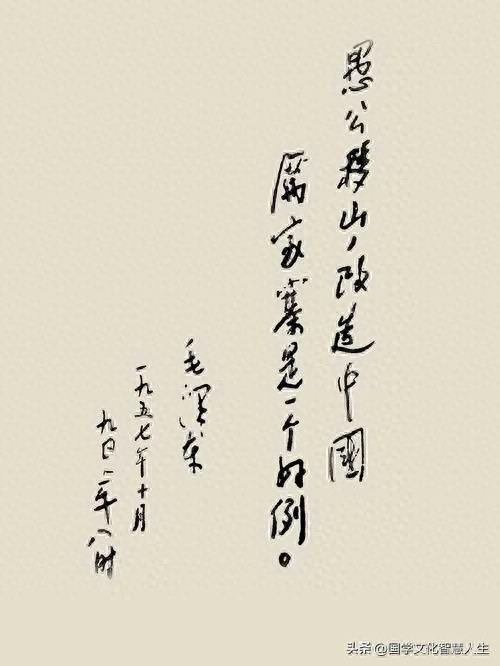 愚公移山,改造中國
厲家寨是一个好例。
毛澤東
一九五七年十月
九日上午八时
头条 @国学文化智慧人生